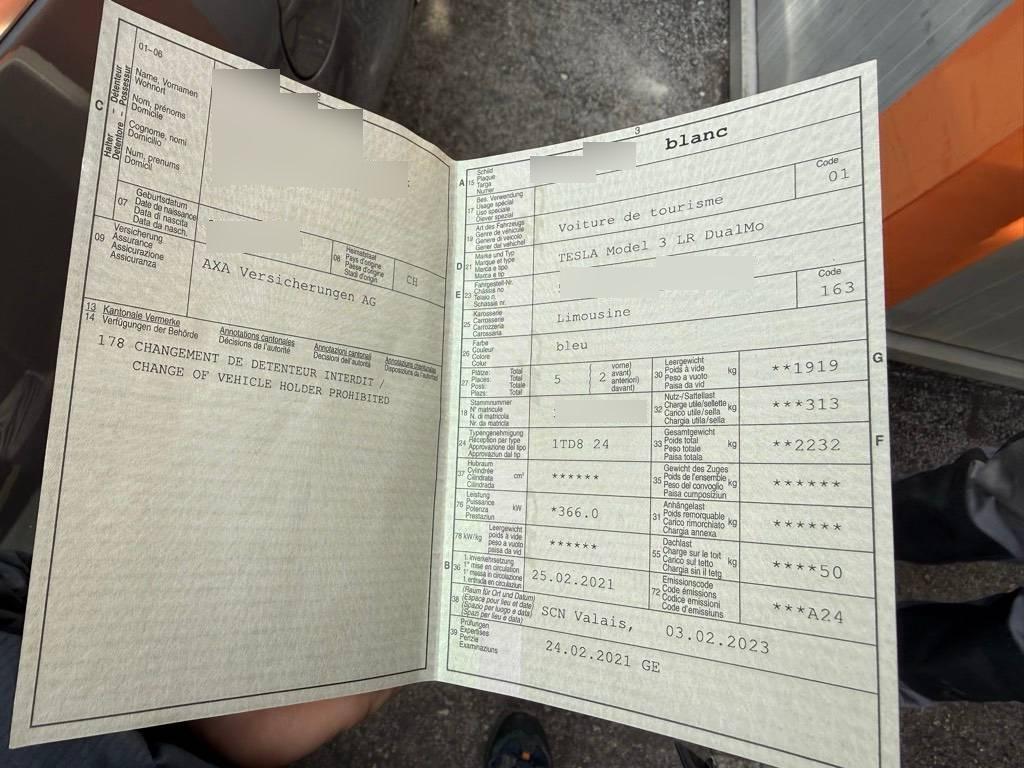 01-06
C
Halter - Détenteur
Detentore - Possessur
Name, Vornamen
Wohnort
Nom, prénoms
Domicile
Cognome, nomi
Domicilio
Num, prenums
Domicil
07
Geburtsdatum
Date de naissance
Data di nascita
Data da nasch.
08
Heimatstaat
Pays d'origine
Paese d'origine
Stadi d'origin
CH
09
Versicherung
Assurance
Assicurazione
Assicuranza
AXA Versicherungen AG
13 Kantonale Vermerke
14 Verfügungen der Behörde
Annotations cantonales
Décisions de l'autorité
Annotazioni cantonali
Decisioni dell'autorità
Annotaziuns chantunalas
Disposiziuns da l'autoritad
178 CHANGEMENT DE DETENTEUR INTERDIT /
CHANGE OF VEHICLE HOLDER PROHIBITED
3
blanc
A 15
Schild
Plaque
Targa
Numer
17
Bes. Verwendung
Usage spécial
Uso speciale
Diever spezial
Code
01
19
Art des Fahrzeugs
Genre de véhicule
Genere di veicolo
Gener dal vehichel
Voiture de tourisme
D 21
Marke und Typ
Marque et type
Marca e tipo
Marca e tip
TESLA Model 3 LR DualMo
E 23
Fahrgestell-Nr.
Châssis no
Telaio n.
Schassis nr.
25
Karosserie
Carrosserie
Carrozzeria
Carossaria
Limousine
Code
163
26
Farbe
Couleur
Colore
Colur
bleu
27
Plätze: Total
Places: Total
Posti: Totale
Plazs: Total
5
2
vorne)
avant)
anteriori)
davant)
30
Leergewicht
Poids à vide
Peso a vuoto
Paisa da vid
kg
**1919
G
18
Stammnummer
N° matricule
N. di matricola
Nr. da matricla
32
Nutz-/Sattellast
Charge utile/sellette
Carico utile/sella
Chargia utila/sella
kg
***313
24
Typengenehmigung
Réception par type
Approvazione del tipo
Approvaziun dal tip
1TD8 24
33
Gesamtgewicht
Poids total
Peso totale
Paisa totala
kg
**2232
F
37
Hubraum
Cylindrée
Cilindrata
Cilindrada
cm³
******
35
Gewicht des Zuges
Poids de l'ensemble
Peso del convoglio
Paisa cumposiziun
kg
******
76
Leistung
Puissance
Potenza
Prestaziun
kW
*366.0
31
Anhängelast
Poids remorquable
Carico rimorchiato
Chargia annexa
kg
******
78 kW/kg
Leergewicht
poids à vide
peso a vuoto
paisa da vid
******
55
Dachlast
Charge sur le toit
Carico sul tetto
Chargia sin il tetg
kg
****50
B 36
1. Inverkehrsetzung
1re mise en circulation
1a messa in circolazione
1. entrada en circulaziun
25.02.2021
72
Emissionscode
Code émissions
Codice emissioni
Code d'emissiuns
***A24
38
(Raum für Ort und Datum)
(Espace pour lieu et date)
(Spazio per luogo e data)
(Spazi per lieu e data)
SCN Valais, 03.02.2023
39
Prüfungen
Expertises
Perizie
Examinaziuns
24.02.2021 GE